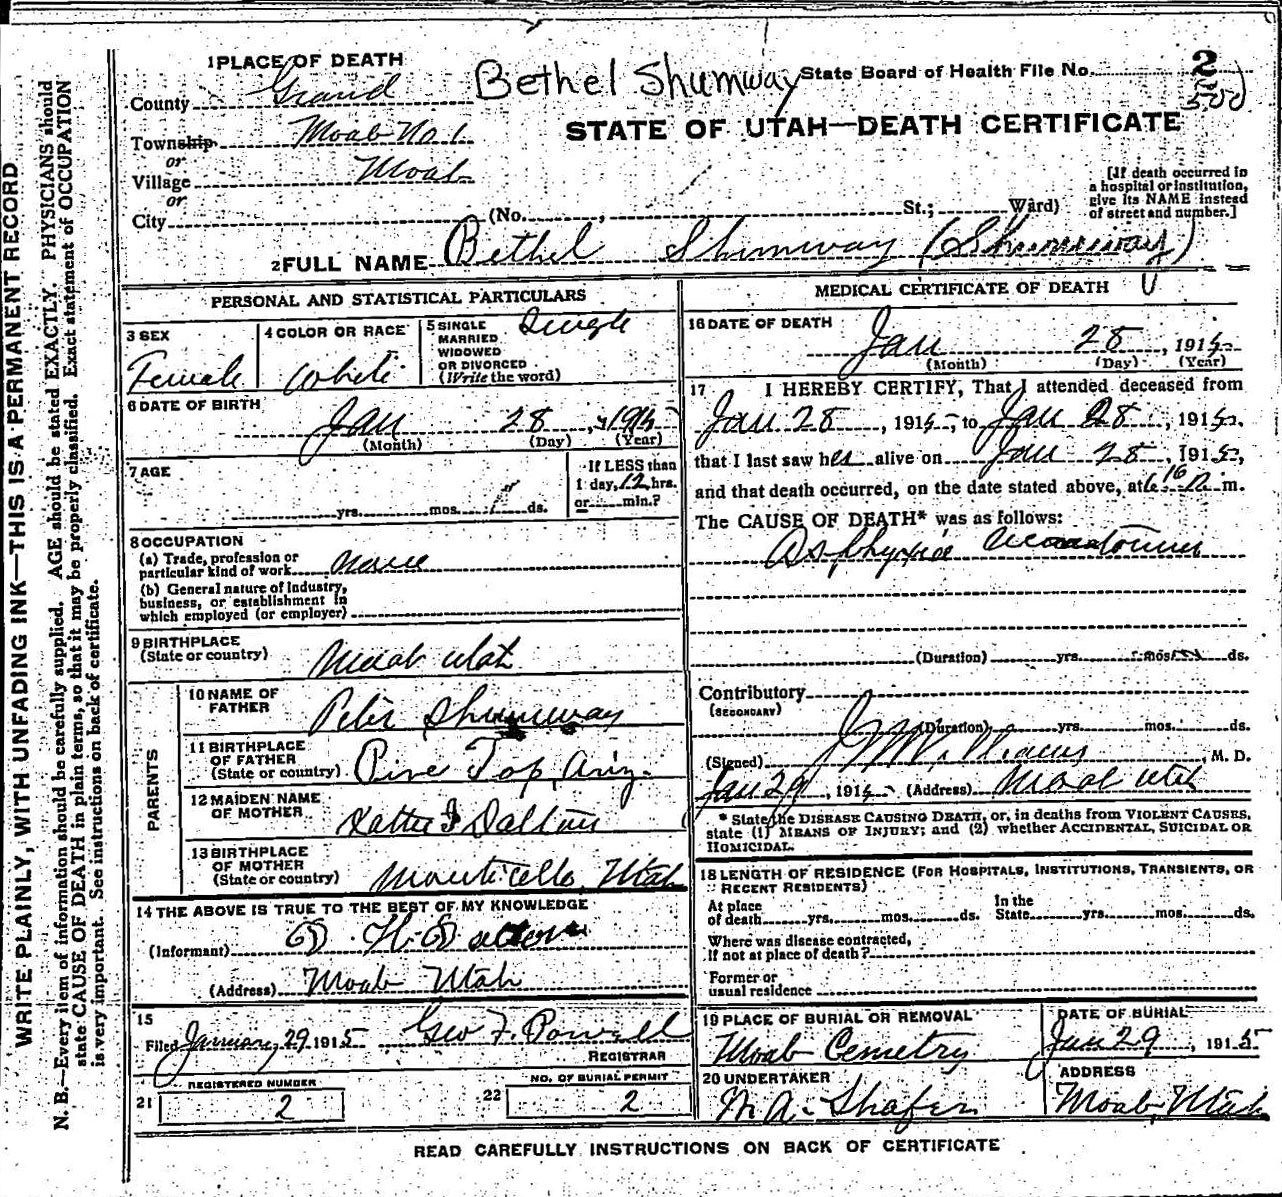 WRITE PLAINLY, WITH UNFADING INK—THIS IS A PERMANENT RECORD
N. B.—Every item of information should be carefully supplied. AGE should be stated EXACTLY. PHYSICIANS should
state CAUSE OF DEATH in plain terms, so that it may be properly classified. Exact statement of OCCUPATION
is very important. See instructions on back of certificate.
1 PLACE OF DEATH
Bethel Shumway
State Board of Health File No. 2
County Grand
STATE OF UTAH—DEATH CERTIFICATE
Township Moab No. 1
or
Village Moab
or
City (No. , St.; Ward)
[If death occurred in
a hospital or institution,
give its NAME instead
of street and number.]
2 FULL NAME Bethel Shumway (Shumway)
PERSONAL AND STATISTICAL PARTICULARS
3 SEX
Female
4 COLOR OR RACE
White
5 SINGLE
MARRIED
WIDOWED
OR DIVORCED
(Write the word)
Single
6 DATE OF BIRTH
Jan 28, 1915
(Month) (Day) (Year)
7 AGE
yrs. mos. ds.
If LESS than
1 day, 12 hrs.
or min.?
8 OCCUPATION
(a) Trade, profession or
particular kind of work None
(b) General nature of industry,
business, or establishment in
which employed (or employer)
9 BIRTHPLACE
(State or country) Moab Utah
PARENTS
10 NAME OF
FATHER Peter Shumway
11 BIRTHPLACE
OF FATHER
(State or country) Pine Top, Ariz.
12 MAIDEN NAME
OF MOTHER Dalton
13 BIRTHPLACE
OF MOTHER
(State or country) Monticello, Utah
14 THE ABOVE IS TRUE TO THE BEST OF MY KNOWLEDGE
(Informant)
(Address) Moab Utah
15
Filed January 29 1915 Geo F. Powell
REGISTRAR
REGISTERED NUMBER
21 2
NO. OF BURIAL PERMIT
22 2
MEDICAL CERTIFICATE OF DEATH
16 DATE OF DEATH
Jan 28, 1915
(Month) (Day) (Year)
17 I HEREBY CERTIFY, That I attended deceased from
Jan 28, 1915, to Jan 28, 1915,
that I last saw her alive on Jan 28, 1915,
and that death occurred, on the date stated above, at m.
The CAUSE OF DEATH* was as follows:
Asphyxia
(Duration) yrs. mos. ds.
Contributory
(SECONDARY)
(Duration) yrs. mos. ds.
(Signed) J W Williams, M. D.
Jan 29, 1915 (Address) Moab Utah
* State the DISEASE CAUSING DEATH, or, in deaths from VIOLENT CAUSES,
state (1) MEANS OF INJURY; and (2) whether ACCIDENTAL, SUICIDAL OR
HOMICIDAL.
18 LENGTH OF RESIDENCE (FOR HOSPITALS, INSTITUTIONS, TRANSIENTS, OR
RECENT RESIDENTS)
At place
of death yrs. mos. ds.
In the
State yrs. mos. ds.
Where was disease contracted,
If not at place of death?
Former or
usual residence
19 PLACE OF BURIAL OR REMOVAL
Moab Cemetry
DATE OF BURIAL
Jan 29, 1915
20 UNDERTAKER
M. A. Shafer
ADDRESS
Moab, Utah
READ CAREFULLY INSTRUCTIONS ON BACK OF CERTIFICATE